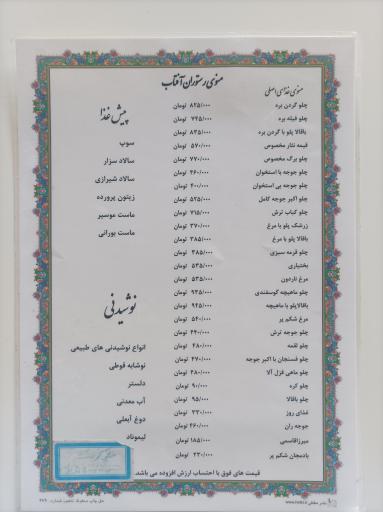 منوی رستوران آفتاب
منوی غذای اصلی
چلو گردن بره ۸۲۵/۰۰۰ تومان
چلو فیله بره ۷۴۵/۰۰۰ تومان
باقالا پلو با گردن بره ۸۳۵/۰۰۰ تومان
قیمه نثار مخصوص ۵۷۰/۰۰۰ تومان
چلو برگ مخصوص ۷۷۰/۰۰۰ تومان
چلو جوجه با استخوان ۴۶۰/۰۰۰ تومان
چلو جوجه بی استخوان ۴۰۰/۰۰۰ تومان
چلو اکبر جوجه کامل ۵۲۵/۰۰۰ تومان
چلو کباب ترش ۷۱۵/۰۰۰ تومان
زرشک پلو با مرغ ۳۷۰/۰۰۰ تومان
باقالا پلو با مرغ ۳۸۵/۰۰۰ تومان
چلو قرمه سبزی ۳۸۵/۰۰۰ تومان
بختیاری ۵۳۵/۰۰۰ تومان
مرغ ناردون ۵۳۵/۰۰۰ تومان
چلو ماهیچه گوسفندی ۹۳۵/۰۰۰ تومان
باقالاپلو با ماهیچه ۹۴۵/۰۰۰ تومان
مرغ شکم پر ۵۴۰/۰۰۰ تومان
چلو جوجه ترش ۴۴۰/۰۰۰ تومان
چلو لقمه ۴۸۰/۰۰۰ تومان
چلو فسنجان با اکبر جوجه ۴۷۰/۰۰۰ تومان
چلو ماهی قزل آلا ۴۸۰/۰۰۰ تومان
چلو کره ۹۰/۰۰۰ تومان
چلو باقالا ۹۵/۰۰۰ تومان
غذای روز ۳۳۰/۰۰۰ تومان
جوجه ران ۴۶۰/۰۰۰ تومان
میرزاقاسمی ۱۸۵/۰۰۰ تومان
بادمجان شکم پر ۲۳۰/۰۰۰ تومان
پیش غذا
سوپ
سالاد سزار
سالاد شیرازی
زیتون پرورده
ماست موسیر
ماست بورانی
نوشیدنی
انواع نوشیدنی های طبیعی
نوشابه قوطی
دلستر
آب معدنی
دوغ آبعلی
لیموناد
قیمت های فوق با احتساب ارزش افزوده می باشد